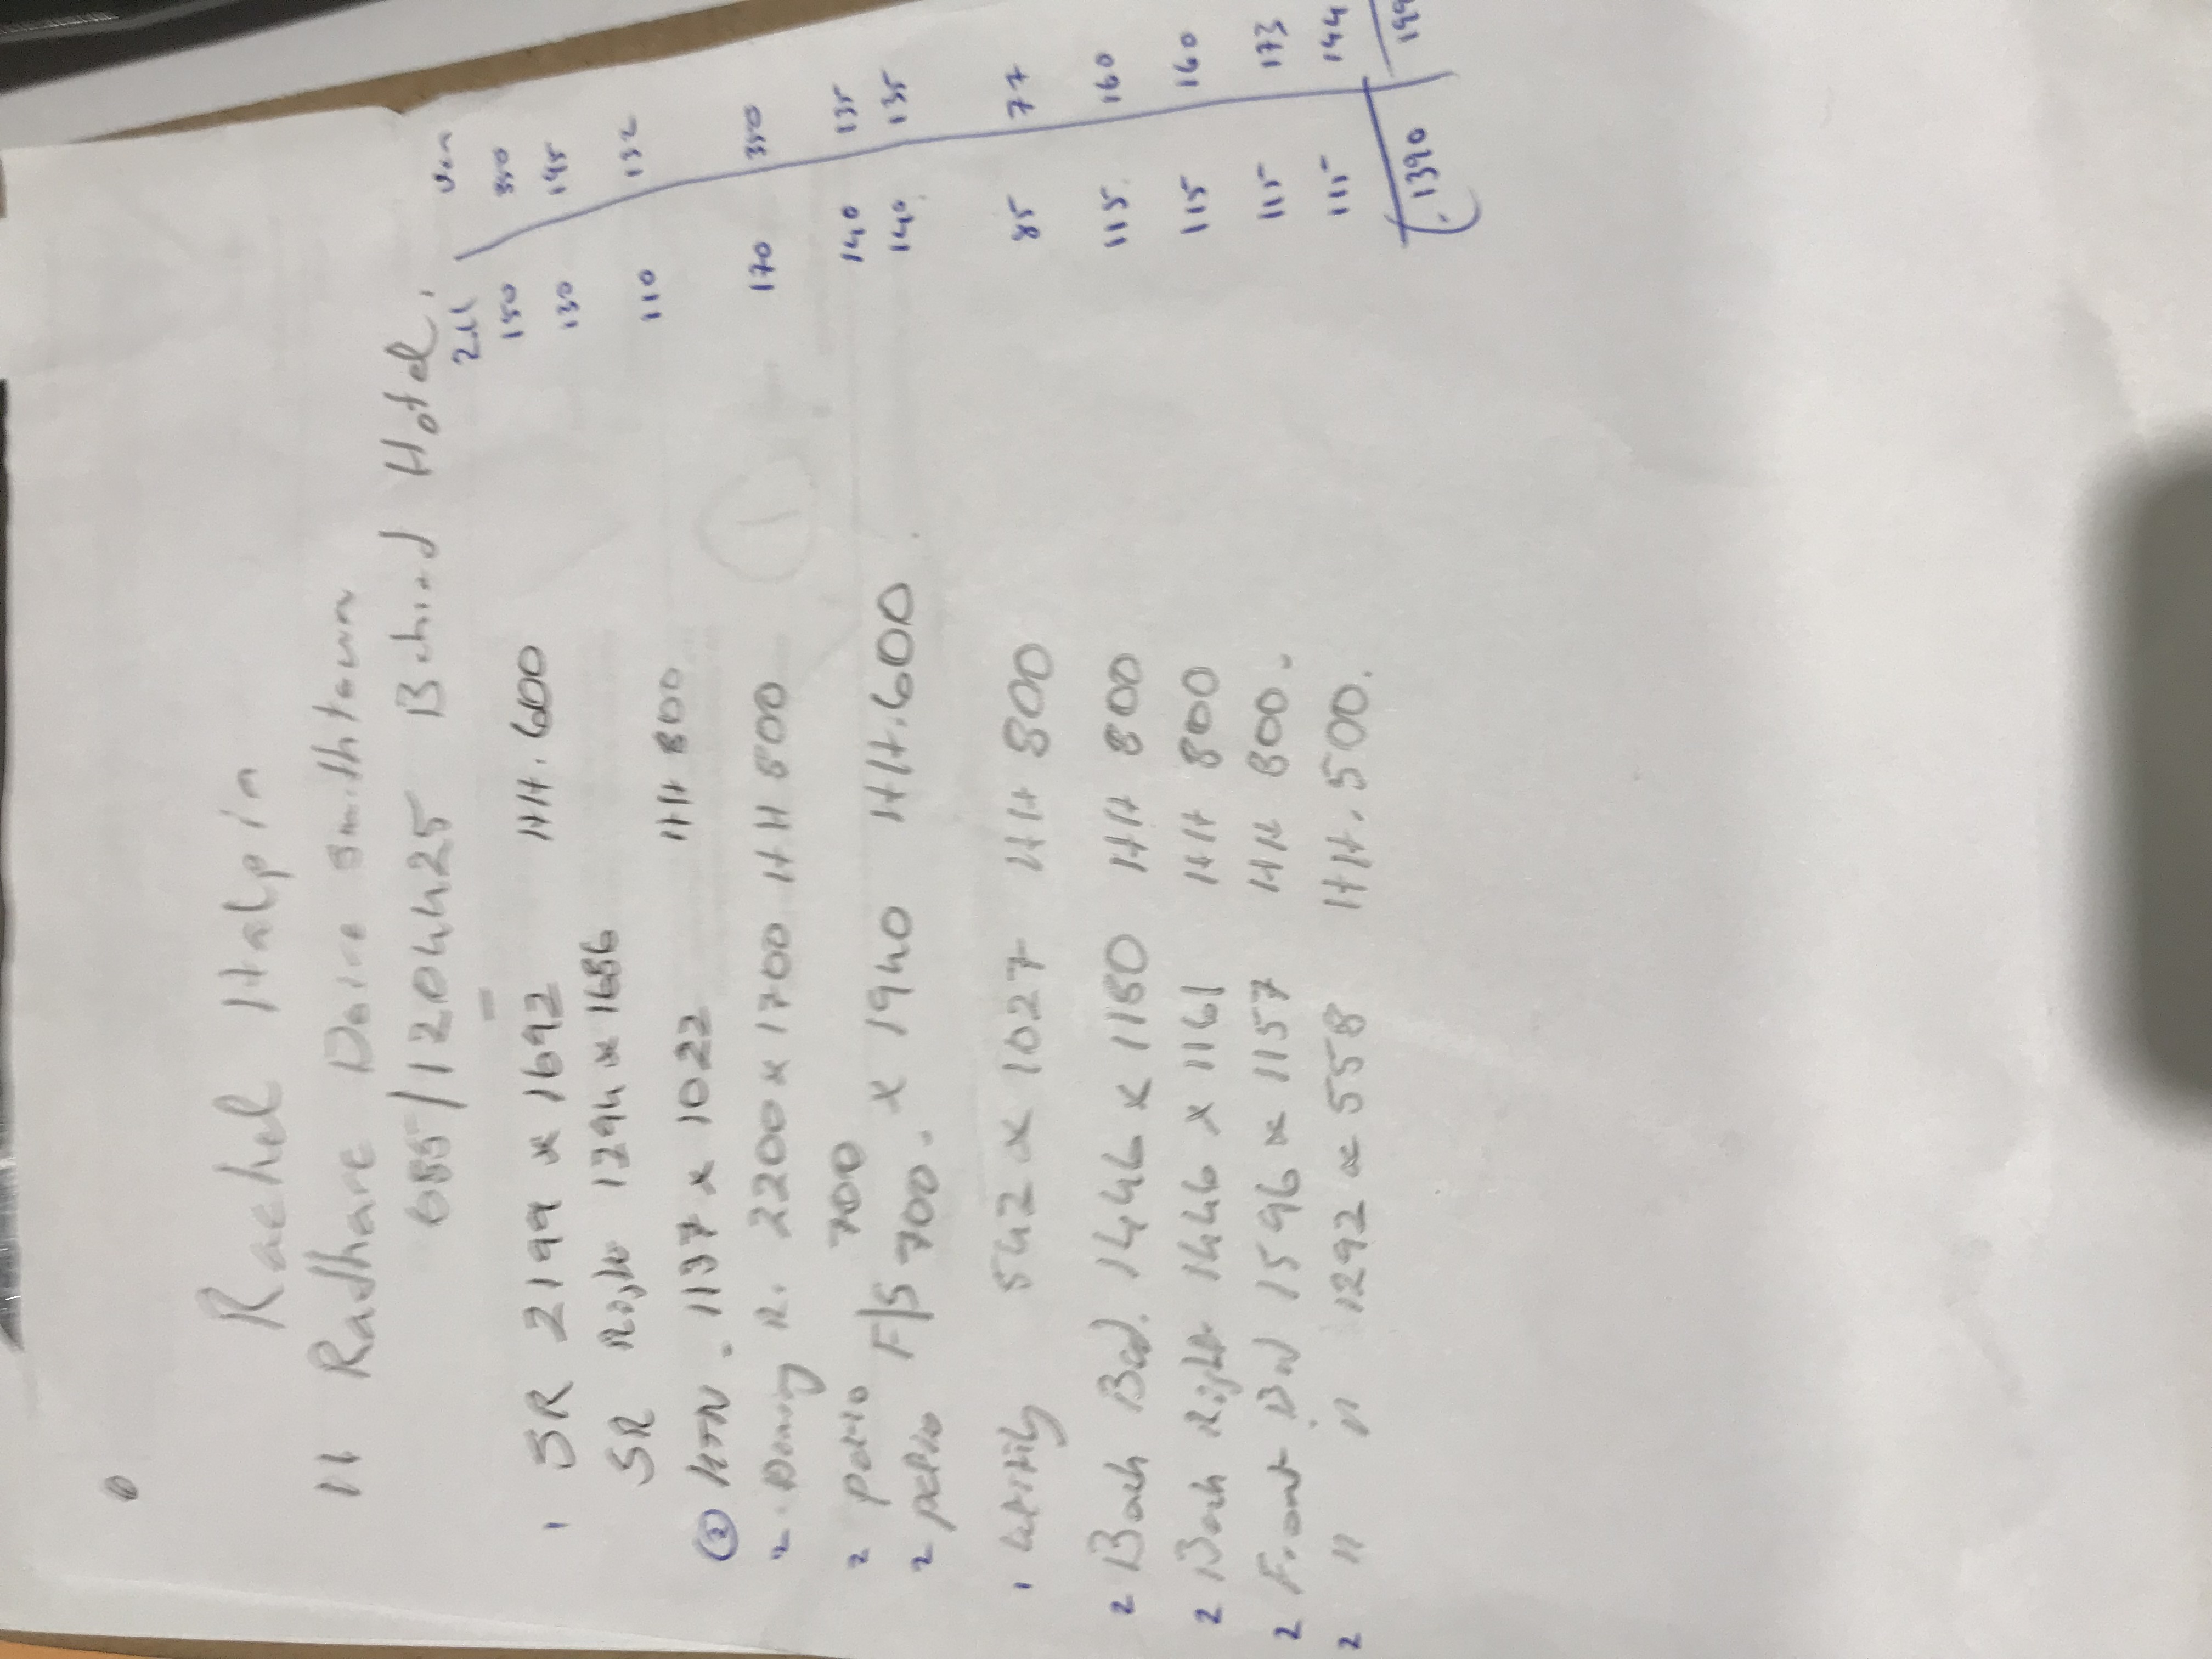 Rachel Halpin
11 Radharc Doire Smithtown
085/1204425 Behind Hotel.
Roll Ven
1 SR 2199 x 1692 HH.600 150 350
SR Right 1294 x 1686 130 145
② KTN - 1137 x 1022 HH 800 110 132
2 Dining R. 2200 x 1700 HH 800 170 350
2 patio 700 140 135
2 patio F/S 700. x 1940 HH.600 140 135
1 utility 542 x 1027 HH 800 85 77
2 Back Bed. 1446 x 1160 HH 800 115 160
2 Back Right 1446 x 1161 HH 800 115 160
2 Front Bed 1596 x 1157 HH 800. 115 173
2 " " 1292 x 558 HH.500. 115 144
1390